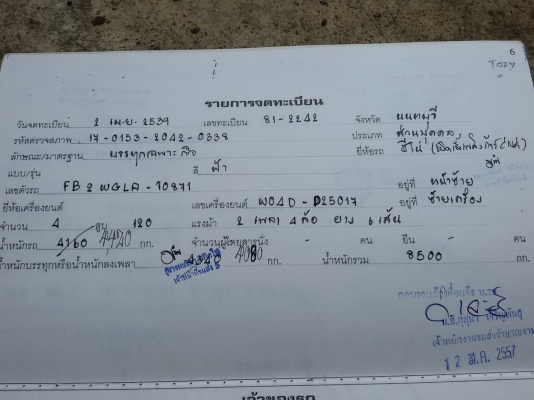 6
Tozy
รายการจดทะเบียน
วันจดทะเบียน 2 เม.ย. 2539 เลขทะเบียน 81-2242 จังหวัด นนทบุรี
รหัสตรวจสภาพ 17-0153-2042-0338 ประเภท ส่วนบุคคล
ลักษณะ/มาตรฐาน บรรทุกเฉพาะกิจ ยี่ห้อรถ ฮีโน่
แบบ/รุ่น สี ฟ้า
เลขตัวรถ FB2WGLA-10871 อยู่ที่ หน้าซ้าย
ยี่ห้อเครื่องยนต์ เลขเครื่องยนต์ W04D-D25017 อยู่ที่ ซ้ายเครื่อง
จำนวน 4 สูบ 120 แรงม้า 2 เพลา 4 ล้อ ยาง 6 เส้น
น้ำหนักรถ 4160 4420 กก. จำนวนผู้โดยสารนั่ง - คน ยืน - คน
น้ำหนักบรรทุกหรือน้ำหนักลงเพลา 4340 4080 กก. น้ำหนักรวม 8500 กก.
เจ้าพนักงานขนส่งชำนาญงาน
12 มี.ค. 2557
เจ้าของรถ